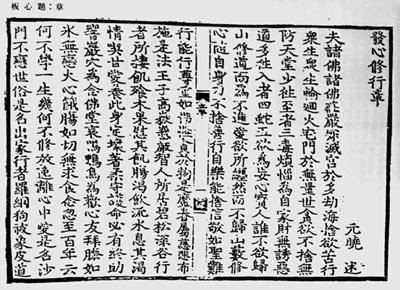 板心題：章
發心修行章
元曉 述
夫諸佛諸佛莊嚴寂滅宮於多劫海捨欲苦行
衆生衆生輪廻火宅門於無量世貪欲不捨無
防天堂少往至者三毒煩惱為自家財無誘惡
道多往入者四蛇五欲為妄心寶人誰不欲歸
山修道而為不進愛欲所纏然而不歸山藪修
心隨自身力不捨善行自樂能捨信敬如聖難
行能行尊重如佛慳貪於物是魔眷屬慈悲布
章
施是法王子高嶽峩巖智人所居碧松深谷行
者所捿飢飡木果慰其飢膓渴飲流水息其渴
情喫甘愛養此身定壞著柔守護命必有終助
響巖穴為念佛堂哀鳴鴨鳥為歡心友拜膝如
氷無戀火心餓膓如切無求食念忽至百年云
何不學一生幾何不修放逸離心中愛是名沙
門不戀世俗是名出家行者羅網狗被象皮道